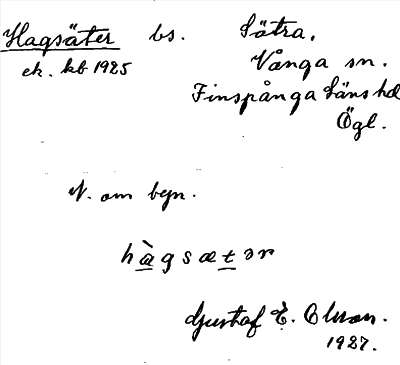 Hagsäter bs. Sätra,
ek. kb 1925 Vånga sn.
Finspånga läns hd
Ögl.
N. om byn.
hàgsætər
Gustaf E. Olson.
1927.